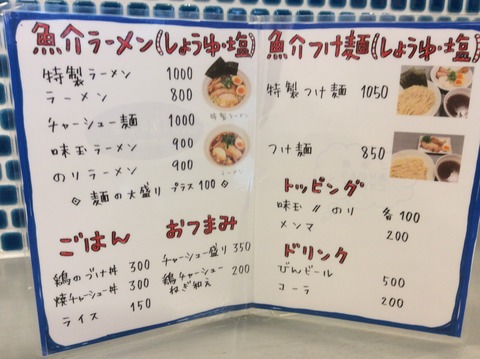 魚介ラーメン(しょうゆ・塩)
特製ラーメン 1000
ラーメン 800
チャーシュー麺 1000
味玉ラーメン 900
のりラーメン 900
◇ 麺の大盛り プラス100 ◇
特製ラーメン
ラーメン
ごはん
鶏のづけ丼 300
焼チャーシュー丼 300
ライス 150
おつまみ
チャーシュー盛り 350
鶏チャーシューねぎ和え 200
魚介つけ麺(しょうゆ・塩)
特製つけ麺 1050
つけ麺 850
トッピング
味玉 〃 のり 各100
メンマ 200
ドリンク
びんビール 500
コーラ 200